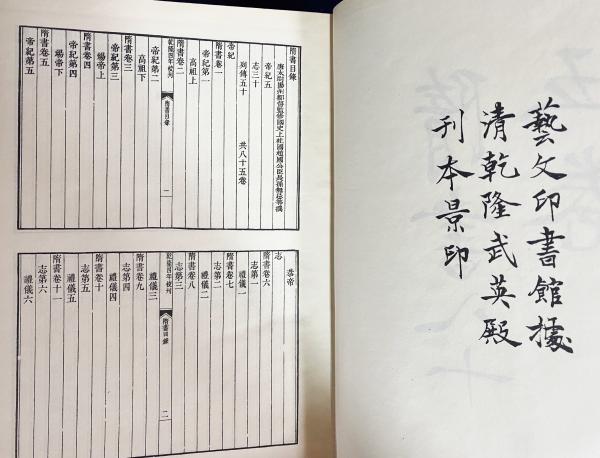 藝文印書館據
清乾隆武英殿
刊本景印
隋書目錄
唐太尉揚州都督監修國史上柱國趙國公臣長孫無忌等撰
帝紀五
志三十
列傳五十 共八十五卷
帝紀
隋書卷一
帝紀第一
高祖上
隋書卷二
乾隆四年校刊 隋書目錄 一
帝紀第二
高祖下
隋書卷三
帝紀第三
煬帝上
隋書卷四
帝紀第四
煬帝下
隋書卷五
帝紀第五
恭帝
志
隋書卷六
志第一
禮儀一
隋書卷七
志第二
禮儀二
隋書卷八
志第三
乾隆四年校刊 隋書目錄 二
禮儀三
隋書卷九
志第四
禮儀四
隋書卷十
志第五
禮儀五
隋書卷十一
志第六
禮儀六